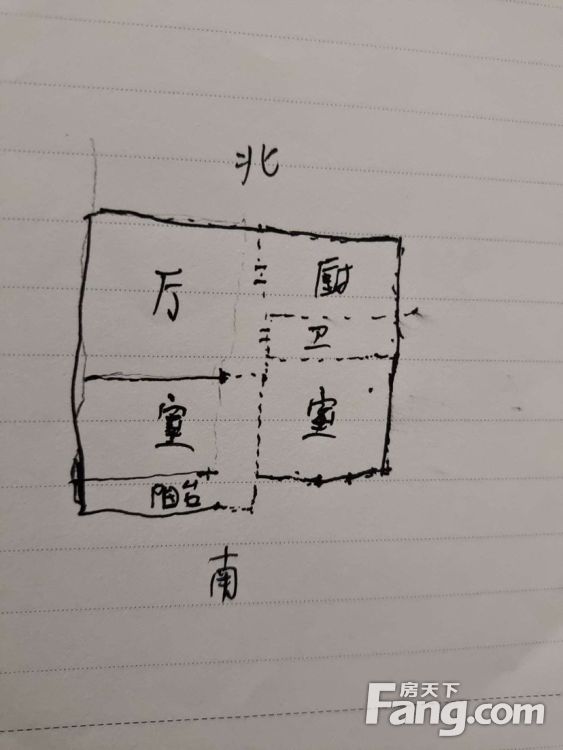 北
厅
厨
卫
室
室
阳台
南
房天下
Fang.com